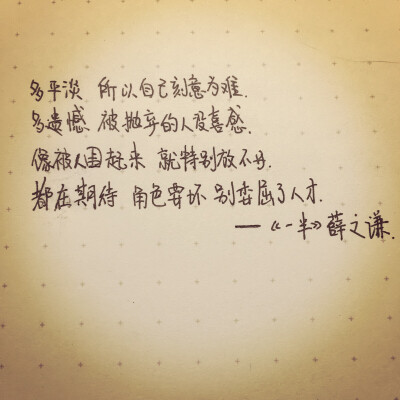 多平淡 所以自己刻意为难.
多遗憾 被抛弃的人没喜感.
像被人围起来 就特别放不了.
都在期待 角色要坏 别委屈了人才.
——《一半》薛之谦.